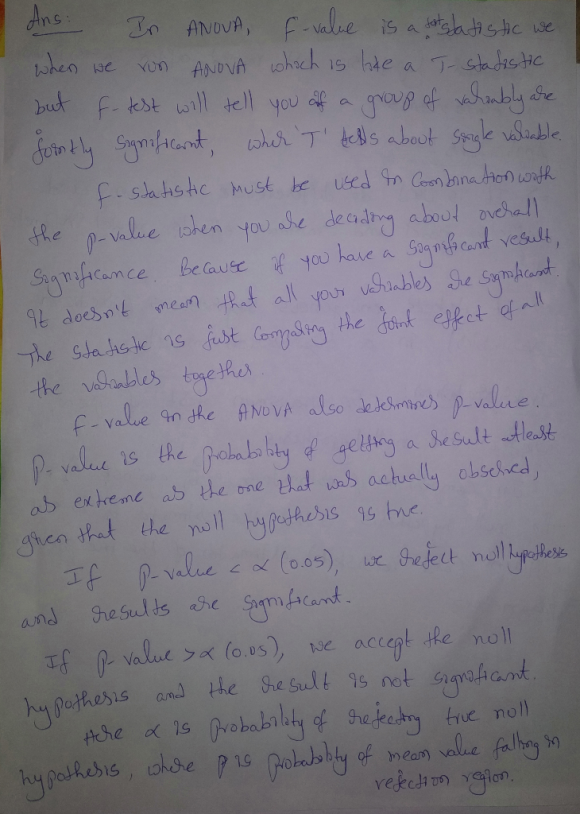 Ans: In ANOVA, F-value is a test statistic we
when we run ANOVA which is like a T-statistic
but F-test will tell you if a group of variably are
jointly significant, wher 'T' tells about single variable.
F-statistic must be used in combination with
the p-value when you are deciding about overall
significance. Because if you have a significant result,
it doesn't mean that all your variables are significant.
The statistic is just comparing the joint effect of all
the variables together.
F-value in the ANOVA also determines p-value.
P-value is the probability of getting a result atleast
as extreme as the one that was actually observed,
given that the null hypothesis is true.
If p-value < α (0.05), we reject null hypothesis
and results are significant.
If p-value > α (0.05), we accept the null
hypothesis and the result is not significant.
Here α is probability of rejecting true null
hypothesis, where p is probability of mean value falling in
rejection region.